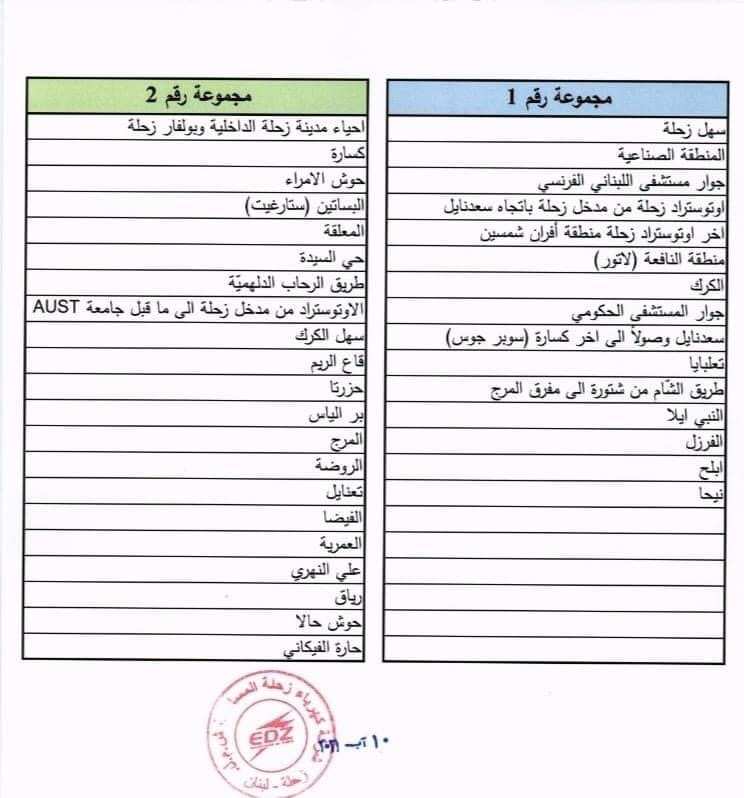 مجموعة رقم 1
سهل زحلة
المنطقة الصناعية
جوار مستشفى اللبناني الفرنسي
اوتوستراد زحلة من مدخل زحلة باتجاه سعدنايل
اخر اوتوستراد زحلة منطقة أفران شمسين
منطقة النافعة (لاتور)
الكرك
جوار المستشفى الحكومي
سعدنايل وصولاً الى اخر كسارة (سوبر جوس)
تعلبايا
طريق الشّام من شتورة الى مفرق المرج
النبي ايلا
الفرزل
ابلح
نيحا
مجموعة رقم 2
احياء مدينة زحلة الداخلية وبولفار زحلة
كسارة
حوش الامراء
البساتين (ستارغيت)
المعلقة
حي السيدة
طريق الرحاب الدلهميّة
الاوتوستراد من مدخل زحلة الى ما قبل جامعة AUST
سهل الكرك
قاع الريم
حزرتا
بر الياس
المرج
الروضة
تعنايل
الفيضا
العمرية
علي النهري
رياق
حوش حالا
حارة الفيكاني
كهرباء زحلة
EDZ
زحلة - لبنان
١٠ آب ٢٠٢١